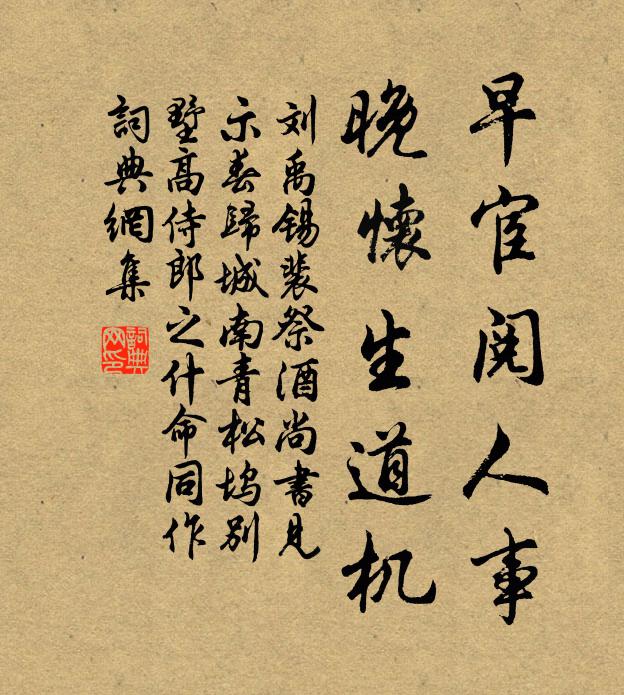 早宦阅人事
晚懷生道机
刘禹锡裴祭酒尚書見
示春歸城南青松坞别
墅高侍郎之什命同作
詞典網集
詞典网印